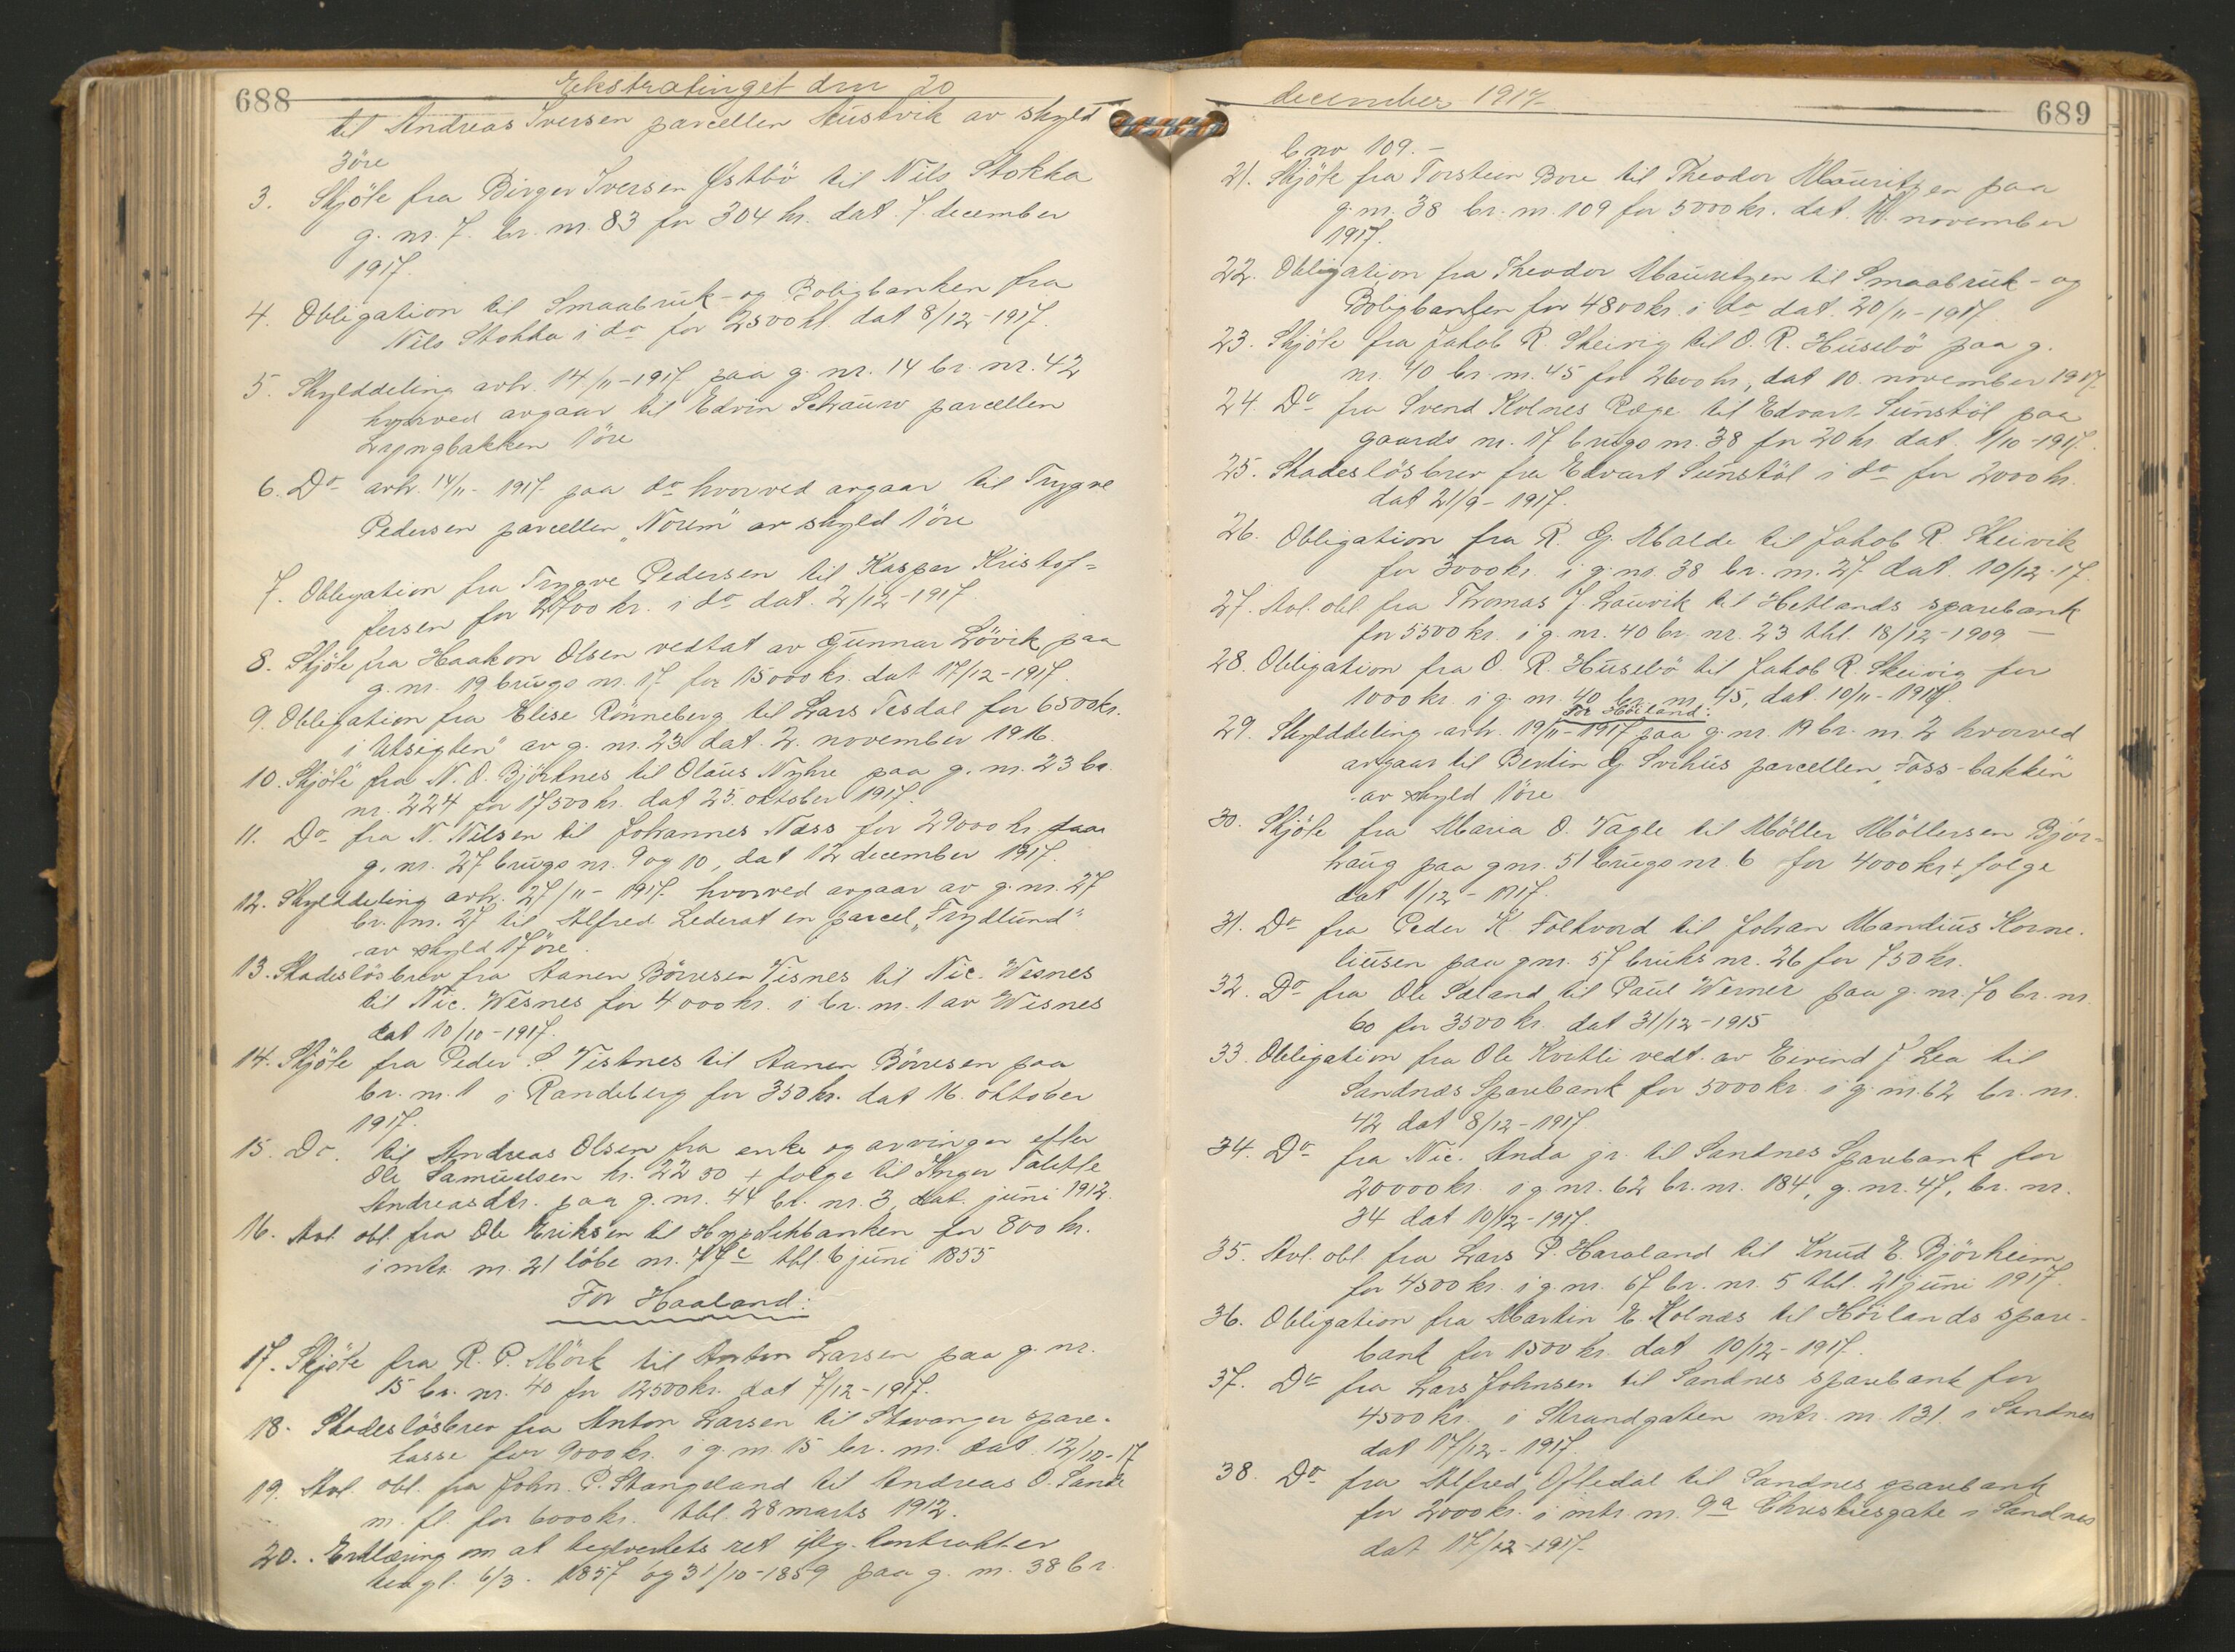 688
Ekstratinget den 20
til Andreas Iversen parcellen Austvik av skyld
3 öre
3. Skjöte fra Birger Iversen Østbö til Nils Stokka
g. nr. 7. br. nr. 83 for 304 kr. dat. 7. december
1917.
4. Obligation til Smaabruk- og Boligbanken fra
Nils Stokka i do for 2500 kr. dat 8/12-1917.
5. Skylddeling avh. 14/11-1917 paa g. nr. 14 br. nr. 42
hvorved avgaar til Edvin Schauw parcellen
Lyngbakken 1 öre
6. Do avh. 14/11-1917 paa do hvorved avgaar til Trygve
Pedersen parcellen „Norem" av skyld 1 öre
7. Obligation fra Trygve Pedersen til Kasper Kristof=
fersen for 2700 kr. i do dat. 2/12-1917.
8. Skjöte fra Haakon Olsen vedtat av Gunnar Lövik paa
g. nr. 19 brugs nr. 17 for 15000 kr. dat 17/12-1917.
9. Obligation fra Elise Rönneberg til Lars Tesdal for 6500 kr.
i „Utsigten" av g. nr. 23 dat. 2. november 1916.
10. Skjöte fra N. O. Björknes til Olaus Nyhre paa g. nr. 23 br.
nr. 224 for 17500 kr. dat 25. oktober 1917.
11. Do fra N. Nilsen til Johannes Næss for 29000 kr. paa
g. nr. 27 brugs nr. 9 og 10, dat 12 december 1917.
12. Skylddeling avh. 27/11-1917. hvorved avgaar av g. nr. 27
br. nr. 27 til Alfred Lederat en parcel „Frydlund"
av skyld 17 öre.
13. Skadeslösbrev fra Aanen Börresen Visnes til Nic. Wesnes
til Nic. Wesnes for 4000 kr. i br. nr. 1 av Wisnes
dat 10/10-1917.
14. Skjöte fra Peder S. Vistnes til Aanen Börresen paa
br. nr. 1 i Randeberg for 350 kr. dat 16. oktober
1917.
15. Do. til Andreas Olsen fra enke og arvinger efter
Ole Samuelsen kr. 2250 + folge til Inger Talette
Andreasdtr. paa g. nr. 44 br. nr. 3, dat. juni 1912.
16. Avl. obl. fra Ole Eriksen til Hypothekbanken for 800 kr.
i mtr. nr. 21 löbe nr. 77c tbl. 6 juni 1855
For Haaland:
17. Skjöte fra R. P. Mörk til Anton Larsen paa g. nr.
15 br. nr. 40 for 12500 kr. dat 7/12-1917.
18. Skadeslösbrev fra Anton Larsen til Stavanger spare-
kasse for 9000 kr. i g. nr. 15 br. nr. dat. 12/10-17
19. Avl. obl. fra John. P. Stangeland til Andreas O. Sande
m. fl. for 6000 kr. tbl. 28 marts 1912.
20. Erklæring om at teglverkets ret iflg. kontrakter
tingl. 6/3-1857 og 31/10-1859 paa g. nr. 38 br.
december 1917
689
b no 109.-
21. Skjöte fra Torsteen Bore til Theodor Mauritzen paa
g. nr. 38 br. nr. 109 for 5000 kr. dat. 10. november
1917.
22. Obligation fra Theodor Mauritzen til Smaabruk- og
Boligbanken for 4800 kr. i do dat. 20/11-1917.
23. Skjöte fra Jakob R. Skeivig til O. R. Husebö paa g.
nr. 40 br. nr. 45 for 2600 kr., dat 10. november 1917.
24. Do fra Svend Kolnes Ræge til Edvart Sunstöl paa
gaards nr. 17 brugs nr. 38 for 20 kr. dat. 1/10-1917.
25. Skadeslösbrev fra Edvart Sunstöl i do for 2000 kr.
dat 21/9-1917.
26. Obligation fra R. G. Malde til Jakob R. Skeivik
for 3000 kr. i g. nr. 38 br. nr. 27 dat. 10/12-17.
27. Avl. obl. fra Thomas J. Lauvik til Hetlands sparebank
for 5500 kr. i g. nr. 40 br. nr. 23 tbl. 18/12-1909 -
28. Obligation fra O. R. Husebö til Jakob R. Skeivig for
1000 kr. i g. nr. 40 br. nr. 45, dat. 10/11-1917.
For Höiland:
29. Skylddeling avh. 19/11-1917 paa g. nr. 19 br. nr. 2 hvorved
avgaar til Bertin G. Svihus parcellen „Foss-bakken"
av skyld 1 öre
30. Skjöte fra Maria O. Vagle til Möller Möllersen Björ=
haug paa gnr. 51 brugs nr. 6 for 4000 kr + folge
dat 1/12-1917.
31. Do fra Peder K. Folkvord til Johan Mandius Korne.
liusen paa gnr. 57 bruks nr. 26 for 750 kr.
32. Do fra Ole Sæland til Paul Werner paa g. nr. 70 br. nr.
60 for 3500 kr. dat 31/12-1915
33. Obligation fra Ole Kvitli vedt. av Eivind J Lea til
Sandnæs Sparebank for 5000 kr. i g. nr. 62 br. nr.
42 dat 8/12-1917.
34. Do fra Nic. Anda jr. til Sandnes Sparebank for
20000 kr. i g. nr. 62 br. nr. 184, g. nr. 47, br. nr.
34 dat 10/12-1917.
35. Avl. obl. fra Lars P. Haraland til Knud E. Björheim
for 4500 kr. i g. nr. 67 br. nr. 5 tbl. 21 juni 1917.
36. Obligation fra Martin E. Kolnæs til Höilands spare-
bank for 1500 kr. dat 10/12-1917.
37. Do fra Lars Johnsen til Sandnes sparebank for
4500 kr. i Strandgaten mtr. nr. 131. i Sandnes
dat 17/12-1917.
38. Do fra Alfred Oftedal til Sandnes sparebank
for 2000 kr. i mtr. nr. 9a Christiesgate i Sandnes
dat 17/12-1917.